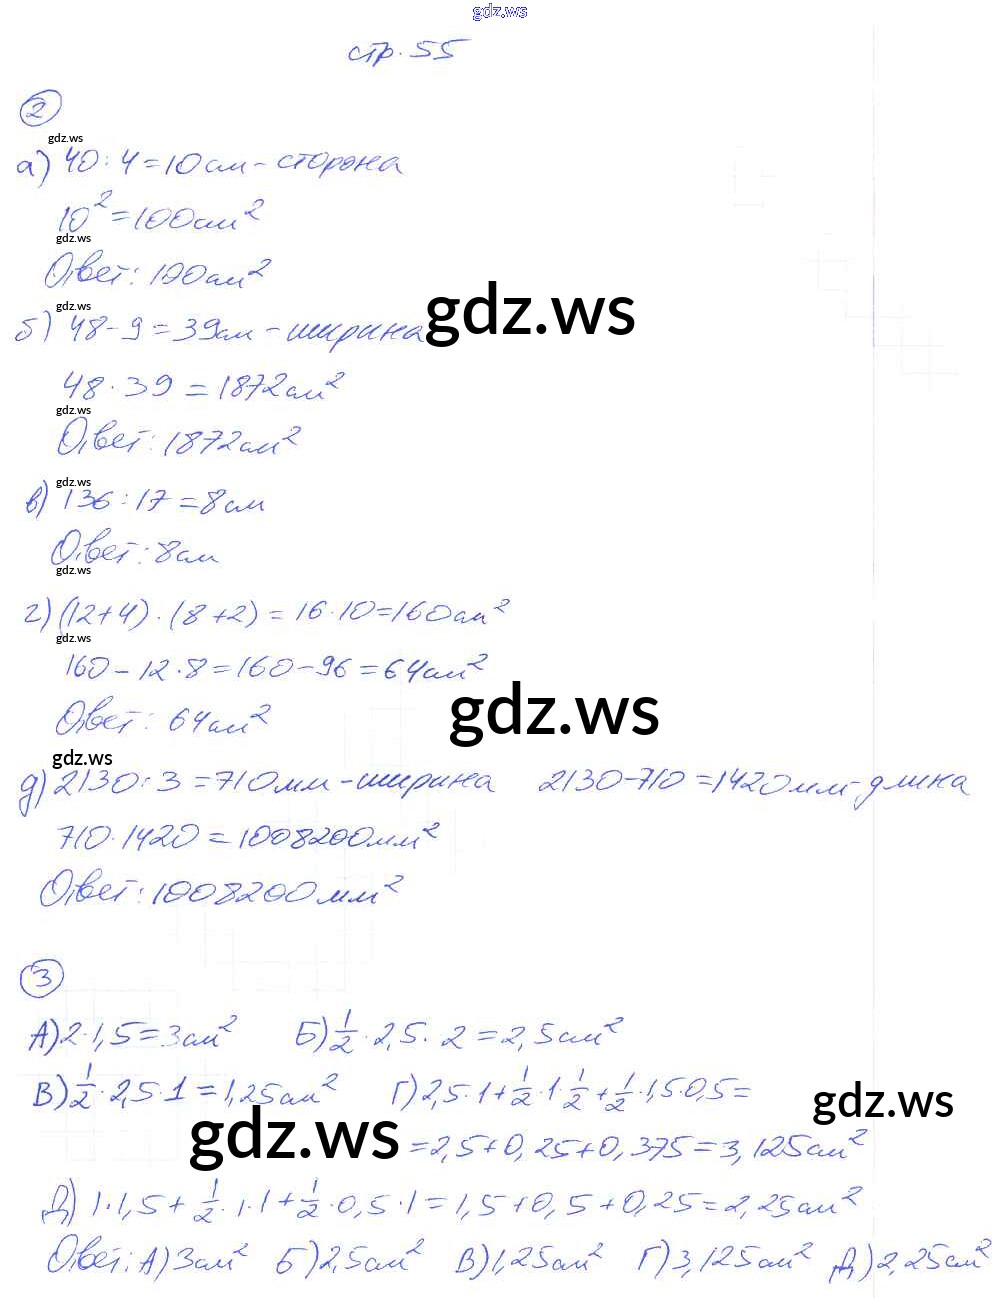 gdz.ws
стр. 55
2
gdz.ws
а) 40 : 4 = 10 см - сторона
10² = 100 см²
gdz.ws
Ответ: 100 см²
gdz.ws
б) 48 - 9 = 39 см - ширина
gdz.ws
48 · 39 = 1872 см²
gdz.ws
Ответ: 1872 см²
gdz.ws
в) 136 : 17 = 8 см
Ответ: 8 см
gdz.ws
г) (12+4) · (8+2) = 16 · 10 = 160 см²
gdz.ws
160 - 12 · 8 = 160 - 96 = 64 см²
Ответ: 64 см²
gdz.ws
gdz.ws
д) 2130 : 3 = 710 мм - ширина 2130 - 710 = 1420 мм - длина
710 · 1420 = 1008200 мм²
Ответ: 1008200 мм²
3
А) 2 · 1,5 = 3 см² Б) ½ · 2,5 · 2 = 2,5 см²
В) ½ · 2,5 · 1 = 1,25 см² Г) 2,5 · 1 + ½ · 1 · ½ + ½ · 1,5 · 0,5 =
gdz.ws
gdz.ws
= 2,5 + 0,25 + 0,375 = 3,125 см²
Д) 1 · 1,5 + ½ · 1 · 1 + ½ · 0,5 · 1 = 1,5 + 0,5 + 0,25 = 2,25 см²
Ответ: А) 3 см² Б) 2,5 см² В) 1,25 см² Г) 3,125 см² Д) 2,25 см²